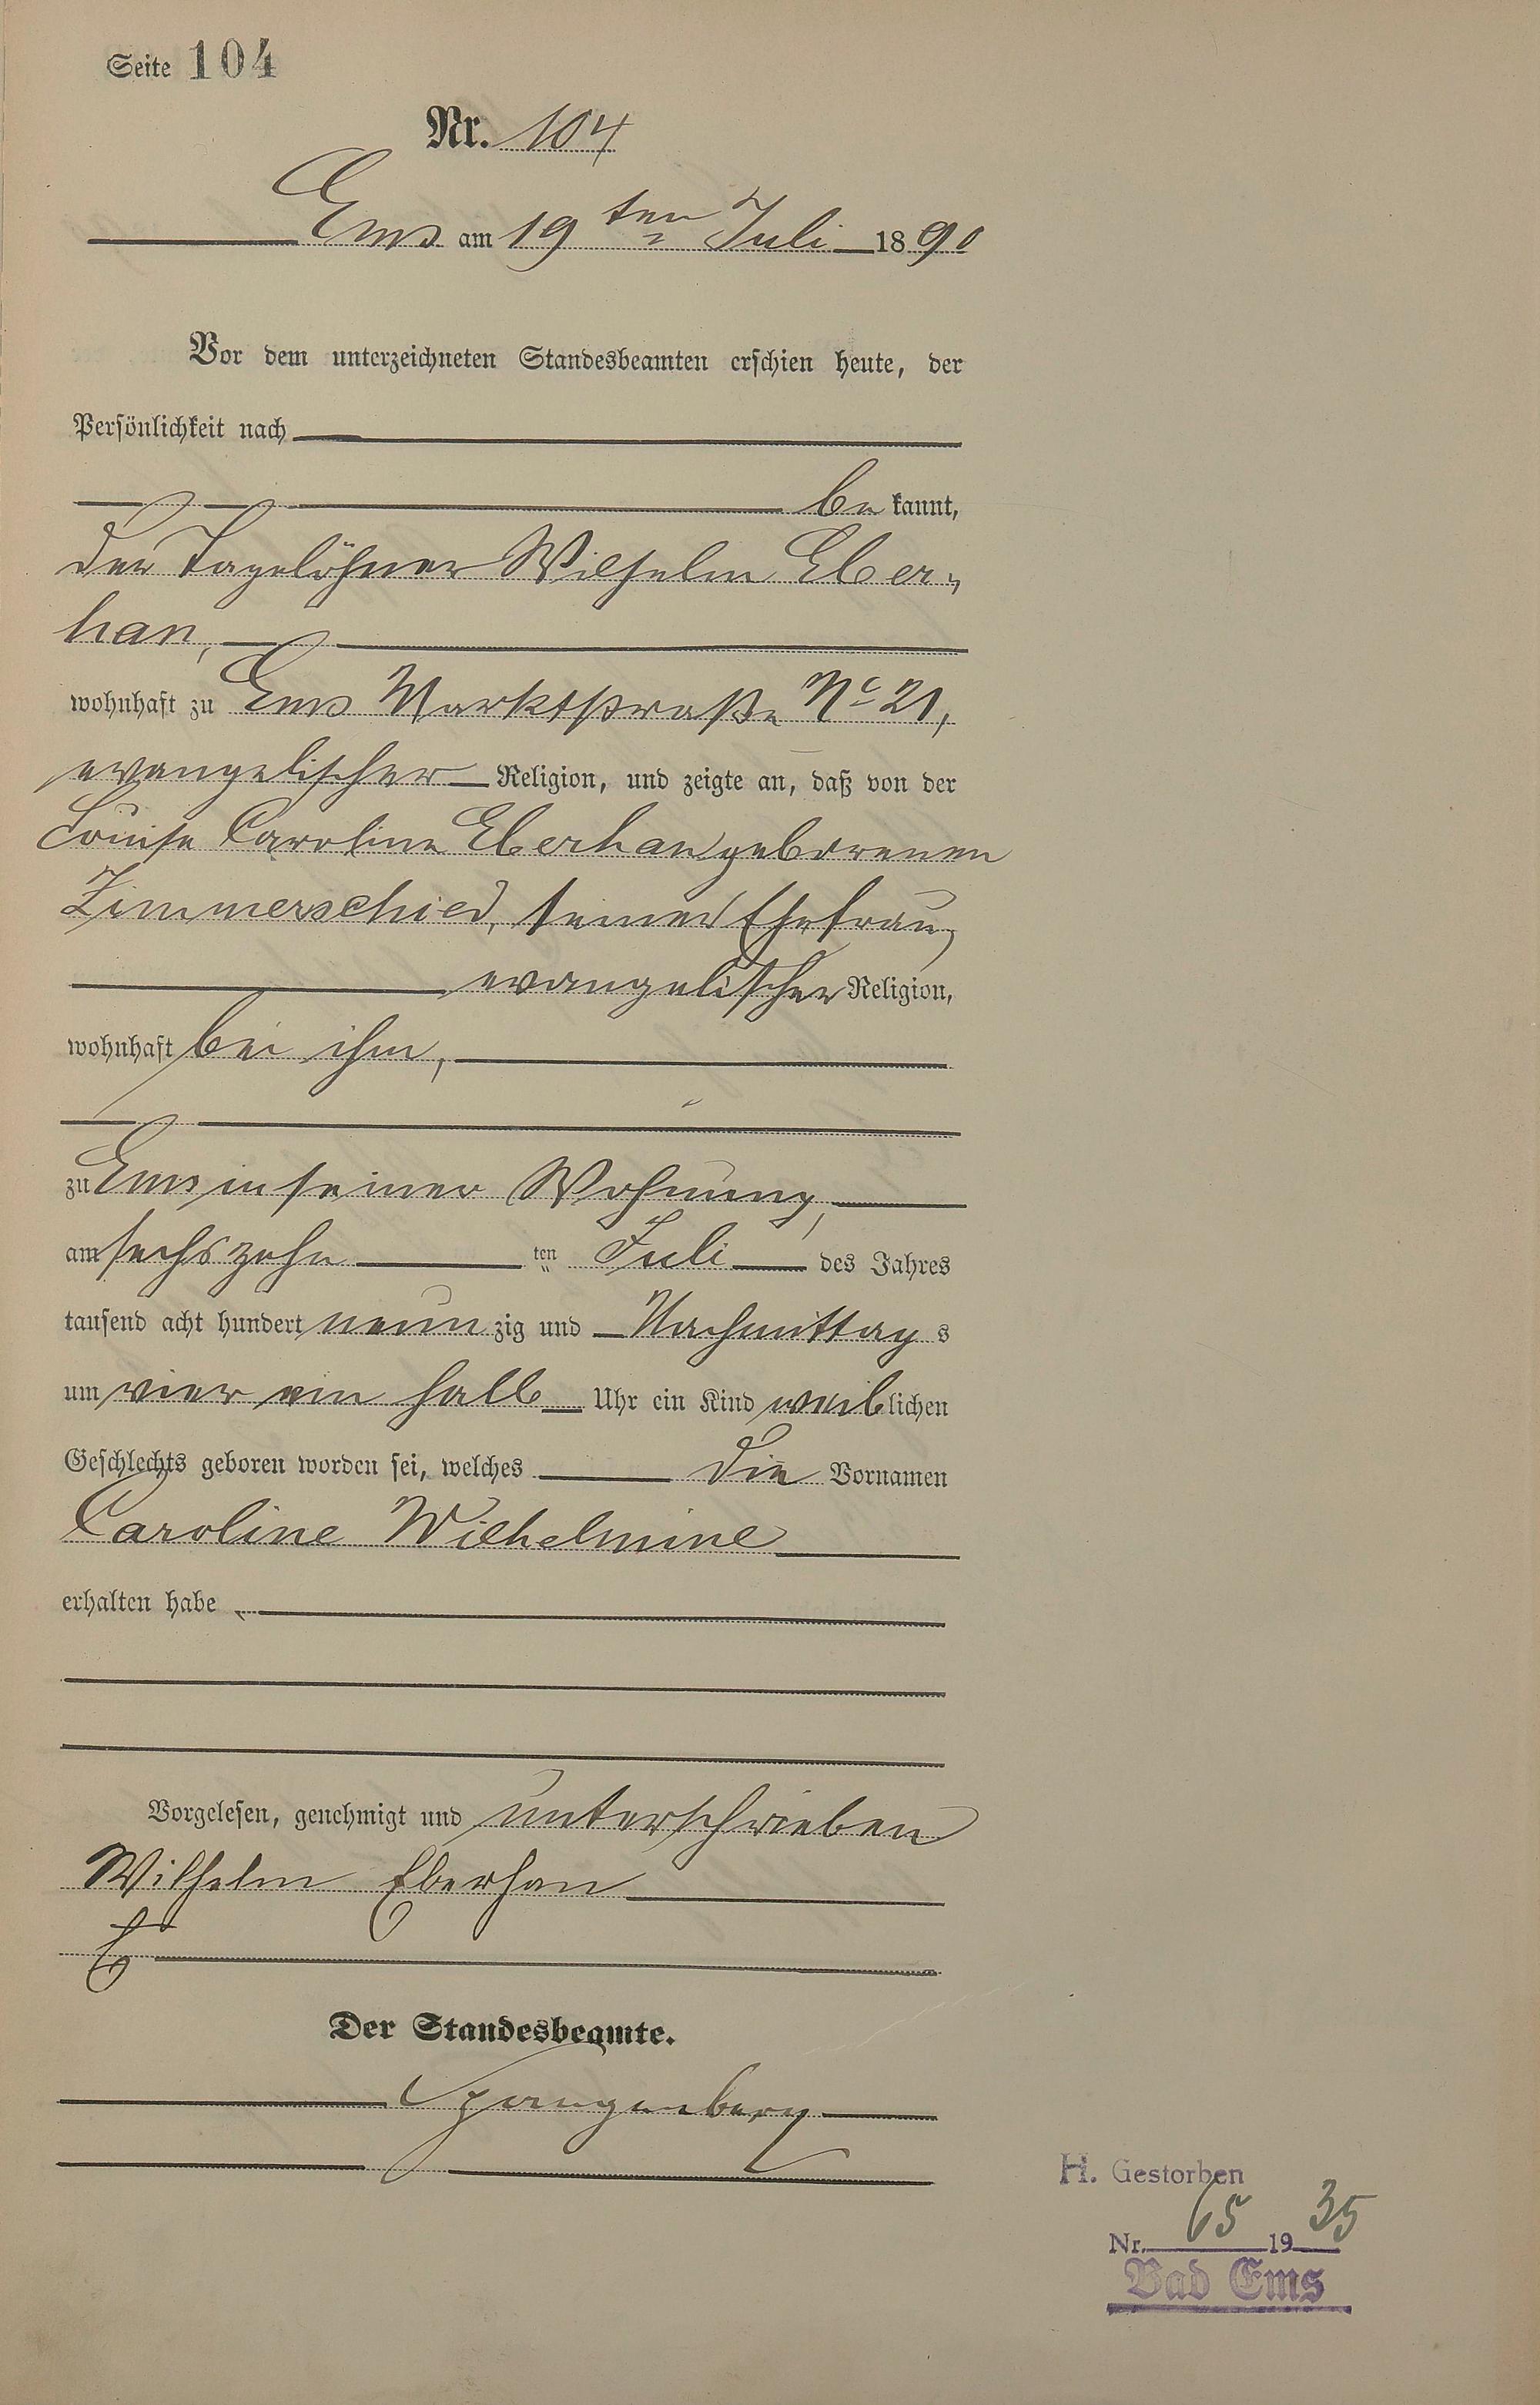 Seite 104
Nr. 104
Ems am 19ten Juli 1890
Vor dem unterzeichneten Standesbeamten erschien heute, der
Persönlichkeit nach
bekannt,
der Tagelöhner Wilhelm Eber-
han,
wohnhaft zu Ems Marktstraße No 21,
evangelischer Religion, und zeigte an, daß von der
Louise Caroline Eberhan geborenen
Zimmerschied, seiner Ehefrau,
evangelischer Religion,
wohnhaft bei ihm,
zu Ems in seiner Wohnung,
am sechszehn ten Juli des Jahres
tausend acht hundert neunzig und Nachmittags
um vier ein halb Uhr ein Kind weiblichen
Geschlechts geboren worden sei, welches die Vornamen
Caroline Wilhelmine
erhalten habe.
Vorgelesen, genehmigt und unterschrieben
Wilhelm Eberhan
Der Standesbeamte.
Spangenberg
H. Gestorben
Nr. 65 1935
Bad Ems